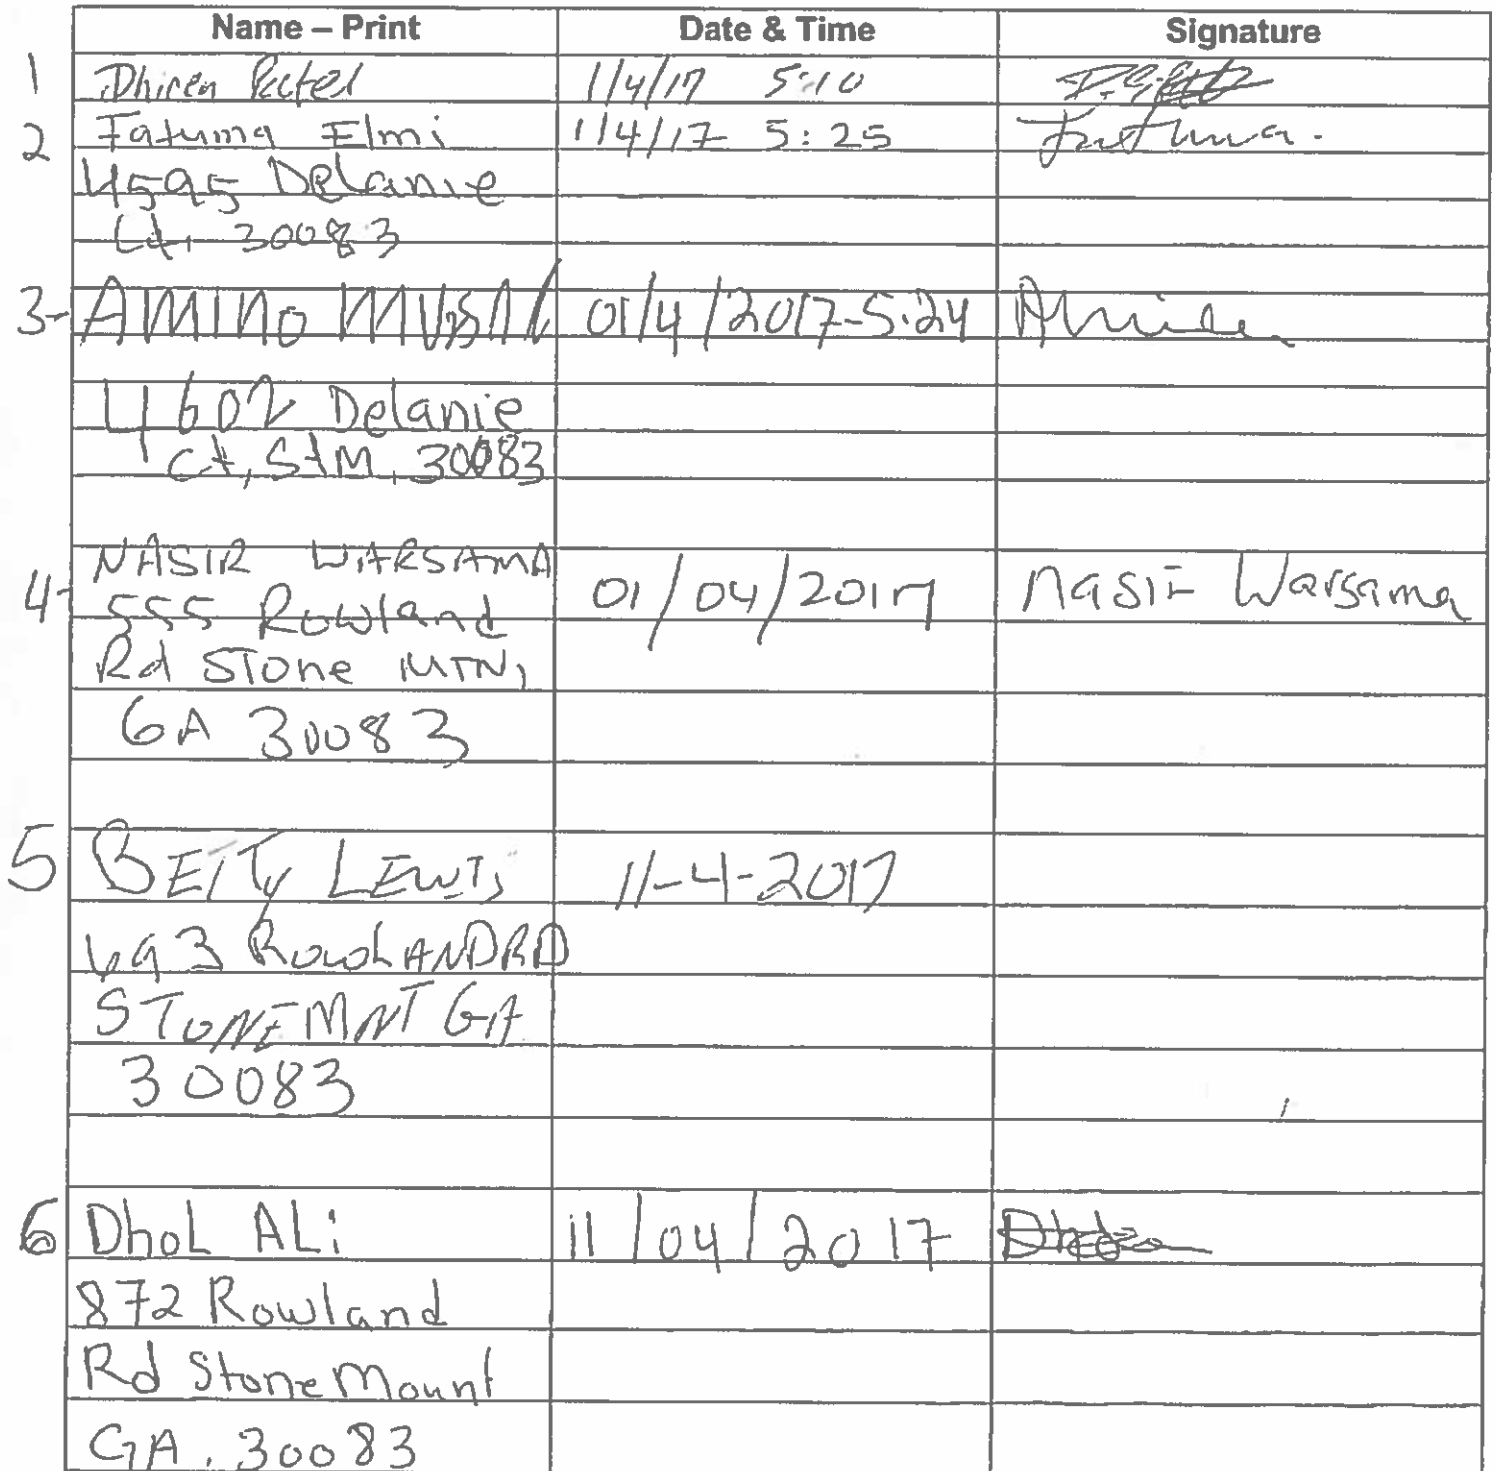 Name – Print Date & Time Signature
1 Dhiren Patel 1/4/17 5:10
2 Fatuma Elmi 1/4/17 5:25 Fatuma.
4595 Delanie
Ct, 30083
3- AMINO MUSSA 01/4/2017-5:24 Amino
4602 Delanie
Ct, StM, 30083
NASIR WARSAMA
4- 01/04/2017 Nasir Warsama
555 Rowland
Rd STone MTN,
GA 30083
5 BETTY LEWIS 11-4-2017
693 ROWLAND RD
STONE MNT GA
30083
6 DhoL ALi 11/04/2017
872 Rowland
Rd Stone Mount
GA. 30083